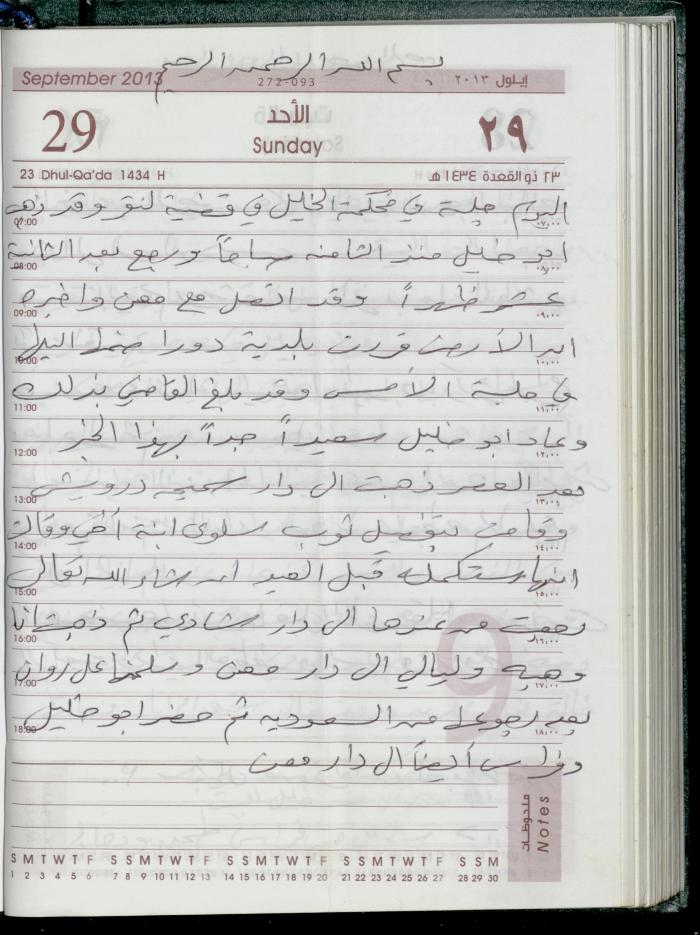 بسم الله الرحمن الرحيم
September 2013 272-093 إيلول ٢٠١٣
29 الأحد Sunday ٢٩
23 Dhul-Qa'da 1434 H ٢٣ ذو القعدة ١٤٣٤ هـ
اليوم جلسة في محكمة الخليل في قضية وقد ذهب
07:00 ٠٧,٠٠
ابو خليل منذ الثامنه صباحاً ورجع بعد الثانية
08:00 ٠٨,٠٠
عشر ظهراً وقد اتصل مع معن واخبره
09:00 ٠٩,٠٠
ان الأرض بلدية دورا
10:00 ١٠,٠٠
في جلسة الأمس وقد بلغ القاضي بذلك
11:00 ١١,٠٠
وعاد ابو خليل سعيداً جداً بهذا الخبر
12:00 ١٢,٠٠
بعد العصر ذهبت ال دار سميحه درويش
13:00 ١٣,٠٠
وقامت بتفصيل ثوب سلوى ابنة أخي وقالت
14:00 ١٤,٠٠
انها ستكمله قبل العيد ان شاء الله تعالى
15:00 ١٥,٠٠
رجعت من عندها ال دار شادي ثم ذهبت انا
16:00 ١٦,٠٠
وهبه وليالي ال دار معن وسلمنا على روان
17:00 ١٧,٠٠
بعد رجوعها من السعوديه ثم حضر ابو خليل
18:00 ١٨,٠٠
وفراس أيضاً ال دار معن
ملاحظات Notes
S M T W T F S S M T W T F S S M T W T F S S M T W T F S S M
1 2 3 4 5 6 7 8 9 10 11 12 13 14 15 16 17 18 19 20 21 22 23 24 25 26 27 28 29 30